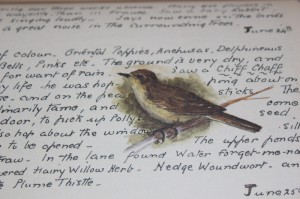 singing loudly. Jays now come on the lands
a great noise in the surrounding trees
June 24th
of colour. Oriental Poppies, Anchusas, Delphiniums
Bells, Pinks etc. The ground is very dry, and
for want of rain. Saw a Chiff Chaff
by life. he was hop ping about on
se. and on the pea sticks. The
inarily tame, and comes
door, to pick up Polly's seed
so hop about the window sill
to be opened. The upper ponds
Fraw. In the lane found Water Forget-me-no
ered Hairy Willow Herb. Hedge Woundwort. an
s Plume Thistle.
June 25th